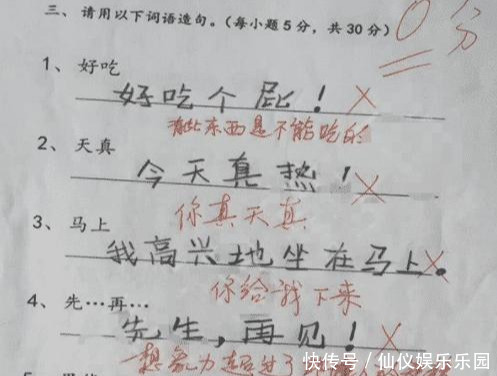 三、请用以下词语造句。（每小题5分，共30分）
0分
1、好吃
好吃个屁！
有些东西是不能吃的
2、天真
今天真热！
你真天真
3、马上
我高兴地坐在马上。
你给我下来
4、先…再…
先生，再见！
想象力超过了
快传号 / 仙仪娱乐乐园